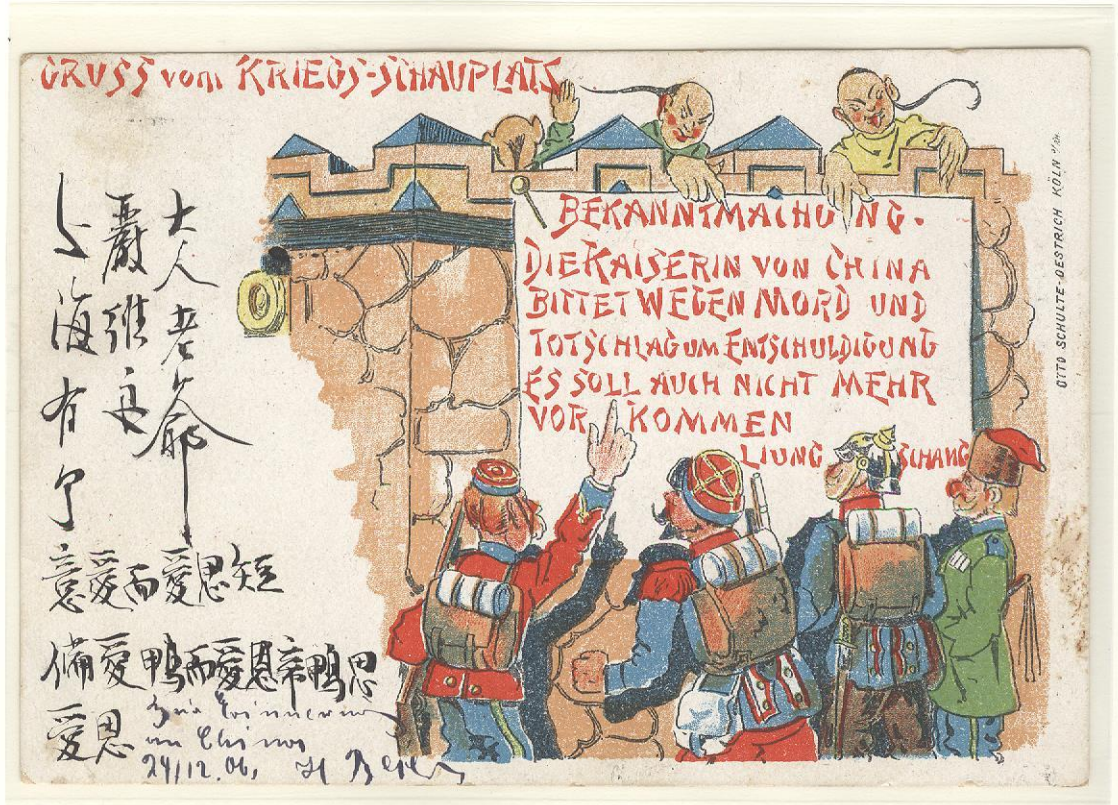 GRUSS vom KRIEGS-SCHAUPLATS
BEKANNTMACHUNG.
DIE KAISERIN VON CHINA
BITTET WEGEN MORD UND
TOTSCHLAG UM ENTSCHULDIGUNG
ES SOLL AUCH NICHT MEHR
VOR KOMMEN
LIUNG SCHANG
OTTO SCHULTE-OESTRICH KÖLN a/Rh.
大人老爺
嚴維
上海有
意愛而愛思短
備愛鴨而愛恩帝鴨思
愛思
Zur Erinnerung
an China
24/12.06. H